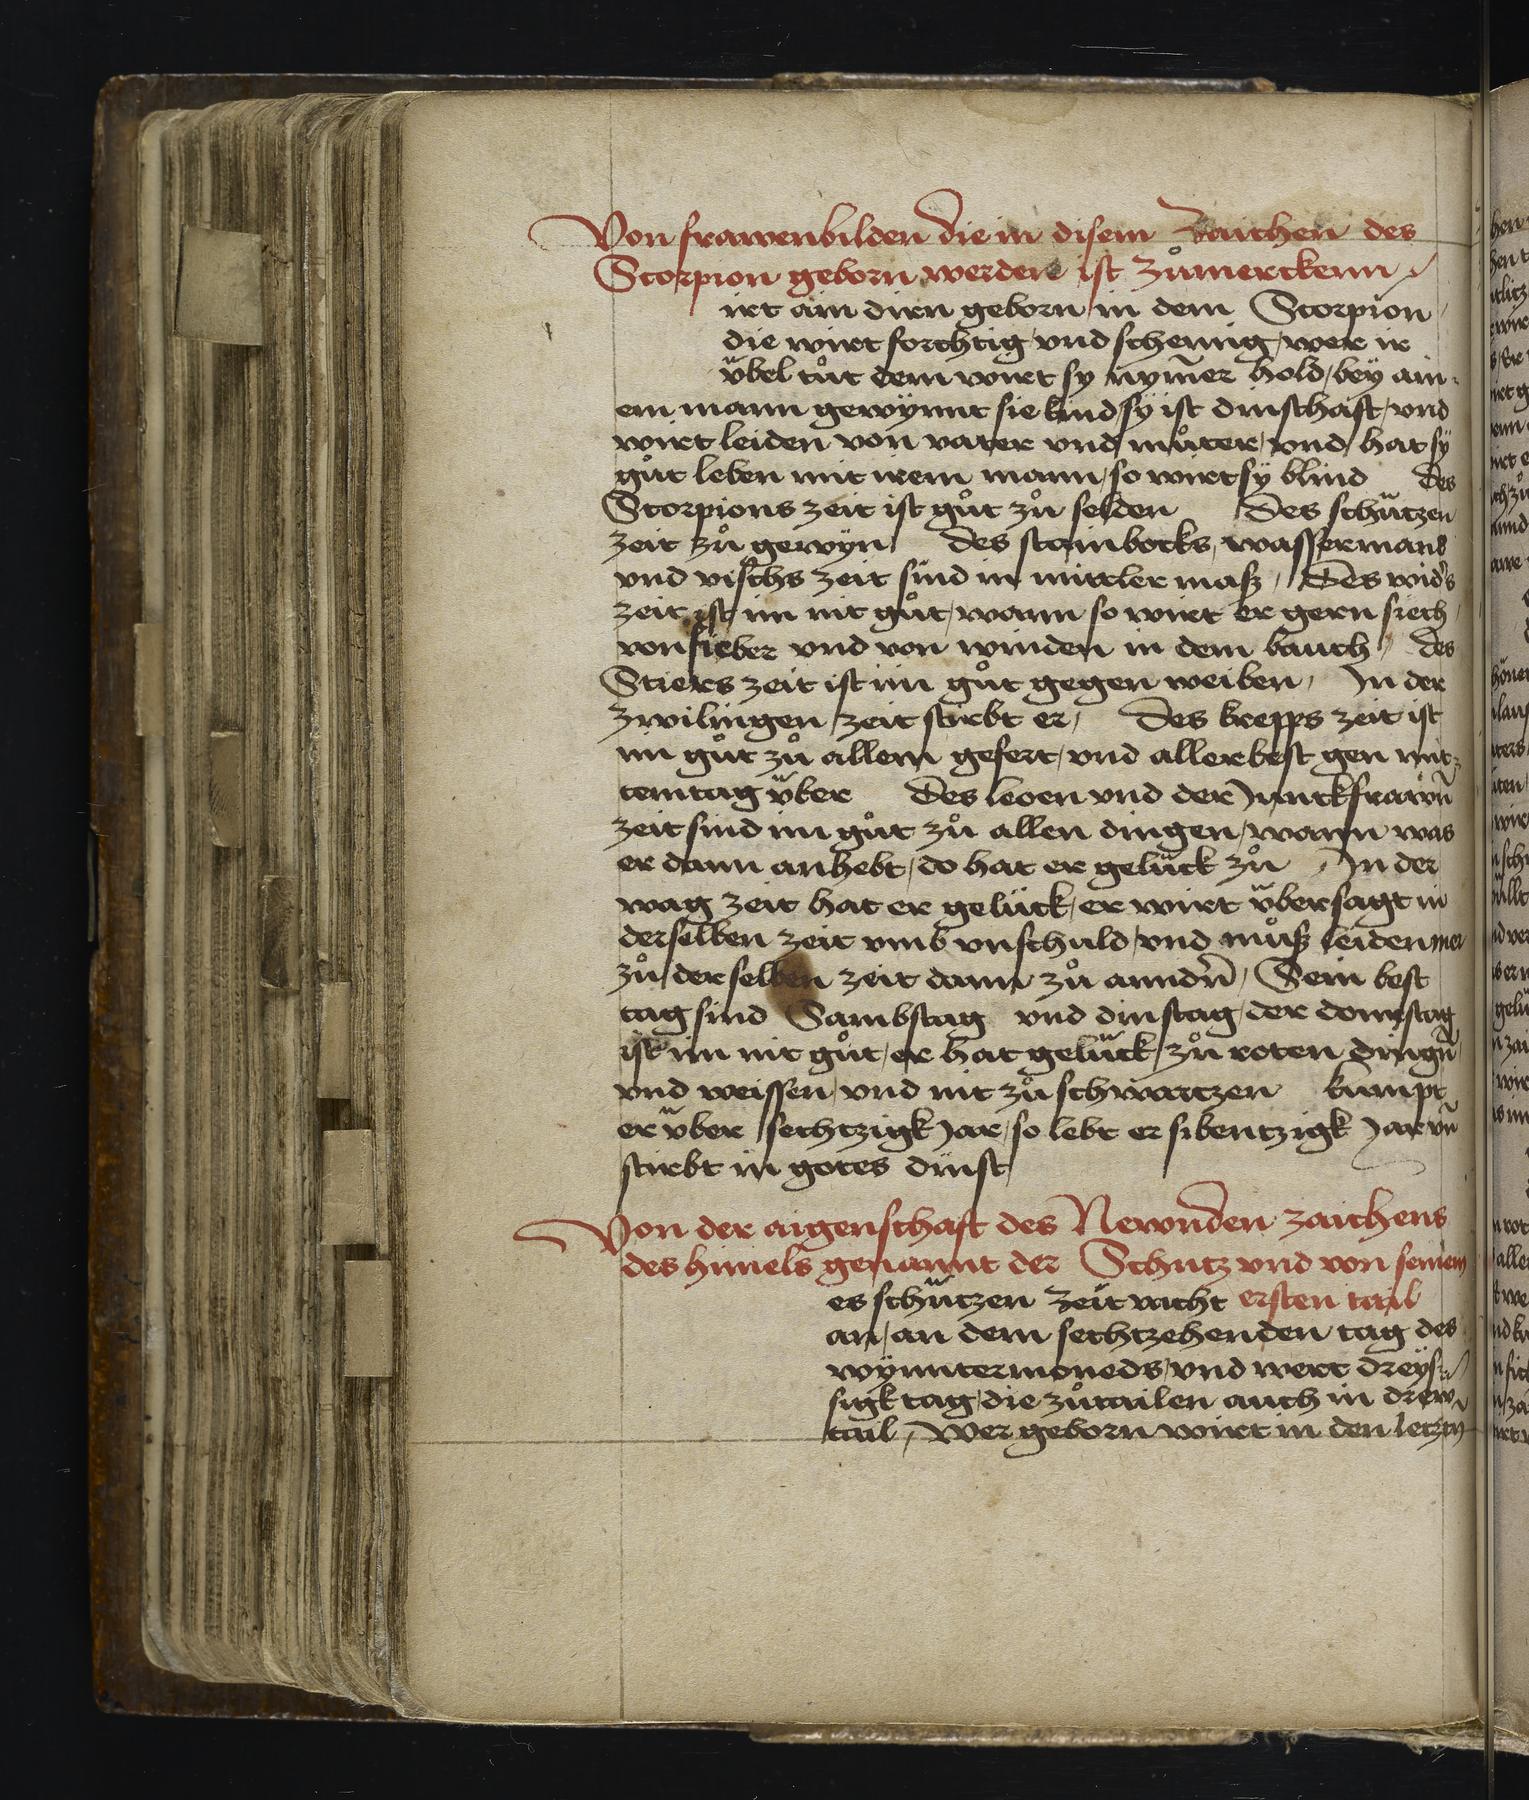 Von frawenbilden die in disem Zaichen des
Scorpion geborn werden ist zůmerckenn
irt ain dirn geborn in dem Scorpion
die wirt forchtig vnd schemig, wer ir
v̈bel tůt dem wirt sy nym̄er hold, bey ain-
em mann gewÿnnt sie kind, sÿ ist dinsthaft, vnd
wirt leiden von vater vnd můter, vnd hat sÿ
gůt leben mit irem mann, so wirt sÿ blind Des
Scorpions zeit ist gůt zů selden Des schützen
zeit zů gewyn Des stainbocks, wassermans
vnd vischs zeit sind in mittler masz, Des wid's
zeit ist im nit gůt, wann so wirt er gern siech,
von fieber vnd von winden in dem bauch, Des
Stiers zeit ist im gůt gegen weiben, In der
Zwilingen zeit stirbt er, Des krepps zeit ist
im gůt zů allem gefert, vnd allerbest gen mit-
temtag v̈ber Des leoen vnd der Junckfrawn̄
zeit sind im gůt zů allen dingen, wann was
er dann anhebt, do hat er gelück zů In der
wag zeit hat er gelück, er wirt v̈bersagt in
derselben zeit vmb vnschuld, vnd můsz leiden mer
zů derselben zeit dann zů anndrn̄, Sein best
tag sind Sambstag vnd dinstag, der donrstag
ist im nit gůt, er hat gelück zů roten dingn̄
vnd weissen, vnd nit zů schwartzen kumpt
er v̈ber sechtzigk Jar, so lebt er sibentzigk Jar vn̄
stirbt in gotes dinst
Von der aigenschaft des Newnden zaichens
des himels genannt der Schutz vnd von seinem
es schützen zeit vacht ersten tail
an, an dem sechtzehenden tag des
wÿnntermoneds, vnd wert dreÿs-
sigk tag, die zůtailen auch in drew
tail, Wer geborn wirt in den letztn̄